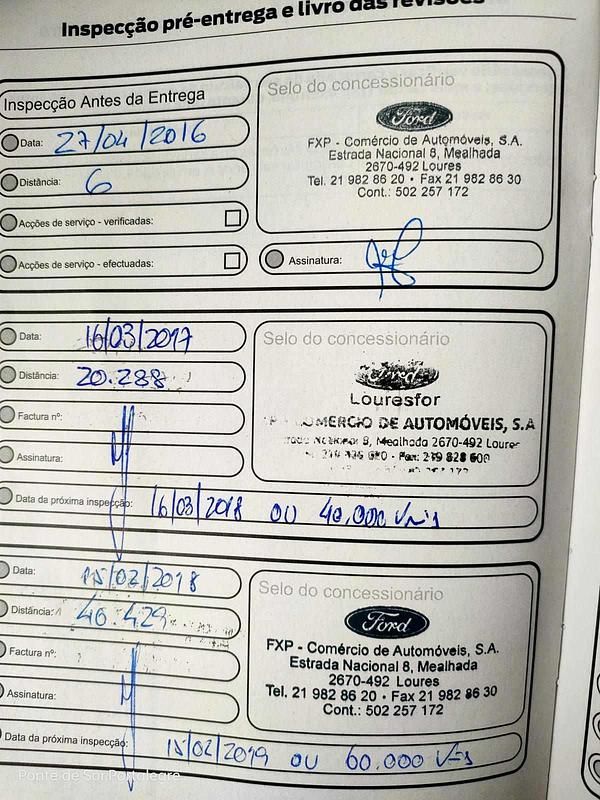 Inspecção pré-entrega e livro das revisões
Inspecção Antes da Entrega
Data: 27/04/2016
Distância: 6
Acções de serviço - verificadas:
Acções de serviço - efectuadas:
Selo do concessionário
Ford
FXP - Comércio de Automóveis, S.A.
Estrada Nacional 8, Mealhada
2670-492 Loures
Tel. 21 982 86 20 • Fax 21 982 86 30
Cont.: 502 257 172
Assinatura:
Data: 16/03/2017
Distância: 20.288
Factura nº:
Assinatura:
Selo do concessionário
Ford
Louresfor
COMERCIO DE AUTOMÓVEIS, S.A
8, Mealhada 2670-492 Loures
Fax: 219 828 600
Data da próxima inspecção: 16/03/2018 OU 40.000
Data: 15/02/2018
Distância: 40.429
Factura nº:
Assinatura:
Selo do concessionário
Ford
FXP - Comércio de Automóveis, S.A.
Estrada Nacional 8, Mealhada
2670-492 Loures
Tel. 21 982 86 20 • Fax 21 982 86 30
Cont.: 502 257 172
Data da próxima inspecção: 15/02/2019 OU 60.000
Ponte de Sor Portalegre